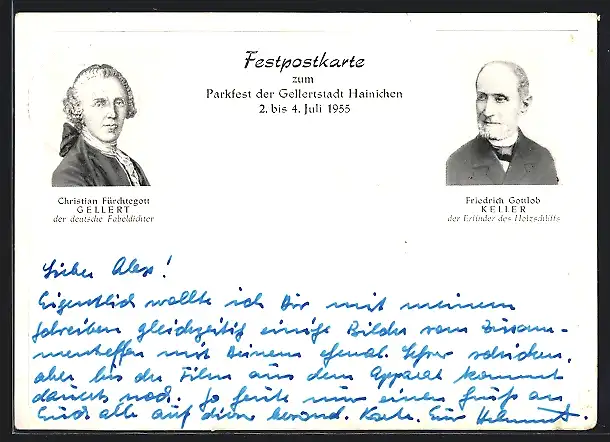 Festpostkarte
zum
Parkfest der Gellertstadt Hainichen
2. bis 4. Juli 1955
Christian Fürchtegott
GELLERT
der deutsche Fabeldichter
Friedrich Gottlob
KELLER
der Erfinder des Holzschliffs
Lieber Alex!
Eigentlich wollte ich Dir mit meinem
Schreiben gleichzeitig einige Bilder vom Zusam-
mentreffen mit Deinem ehemal. Lehrer schicken,
aber bis der Film aus dem Apparat kommt
dauerts noch. So heute nur einen Gruß an
Euch alle auf dieser besond. Karte. Euer Helmut.